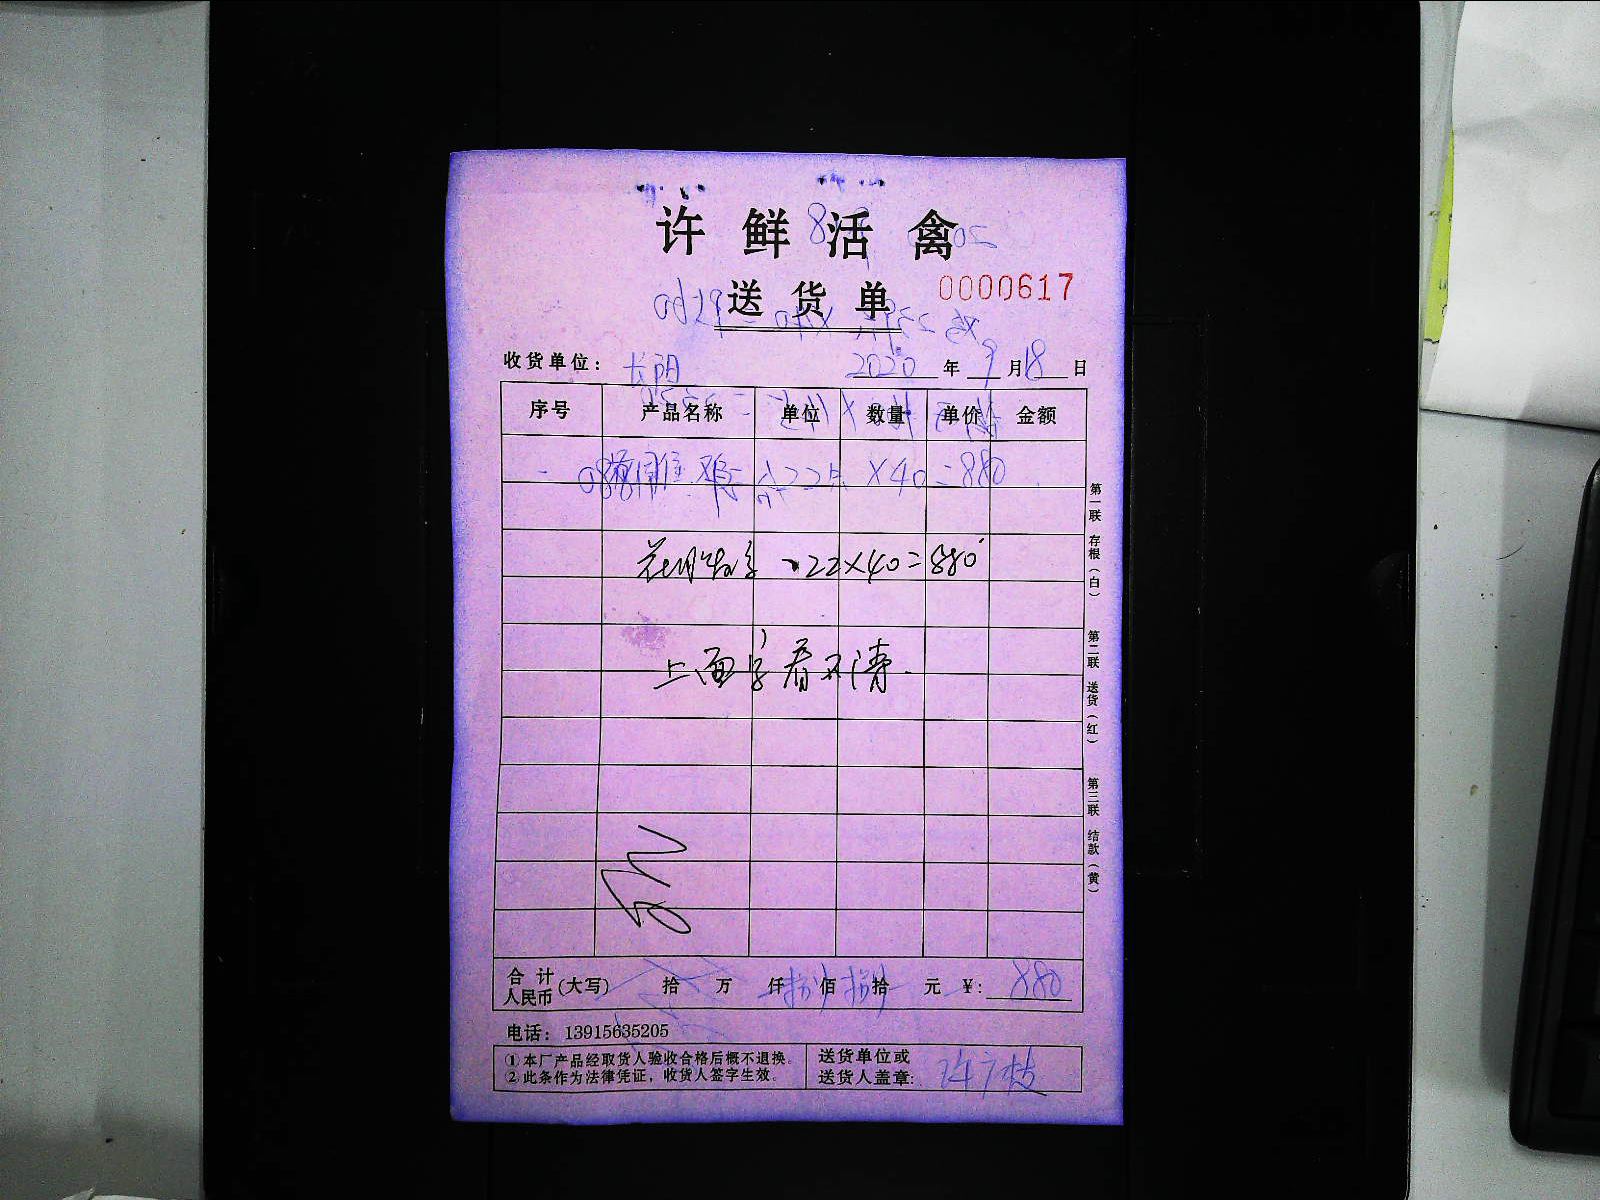 许鲜活禽
送货单 0000617
收货单位： 2020 年 9 月 18 日
序号 产品名称 单位 数量 单价 金额
22 ×40=880
22×40=880
上面字看不清.
合计人民币(大写) 拾 万 仟 捌佰 捌拾 元 ¥: 880
电话： 13915635205
①本厂产品经取货人验收合格后概不退换。
②此条作为法律凭证，收货人签字生效。
送货单位或
送货人盖章:
第一联 存根（白）
第二联 送货（红）
第三联 结款（黄）